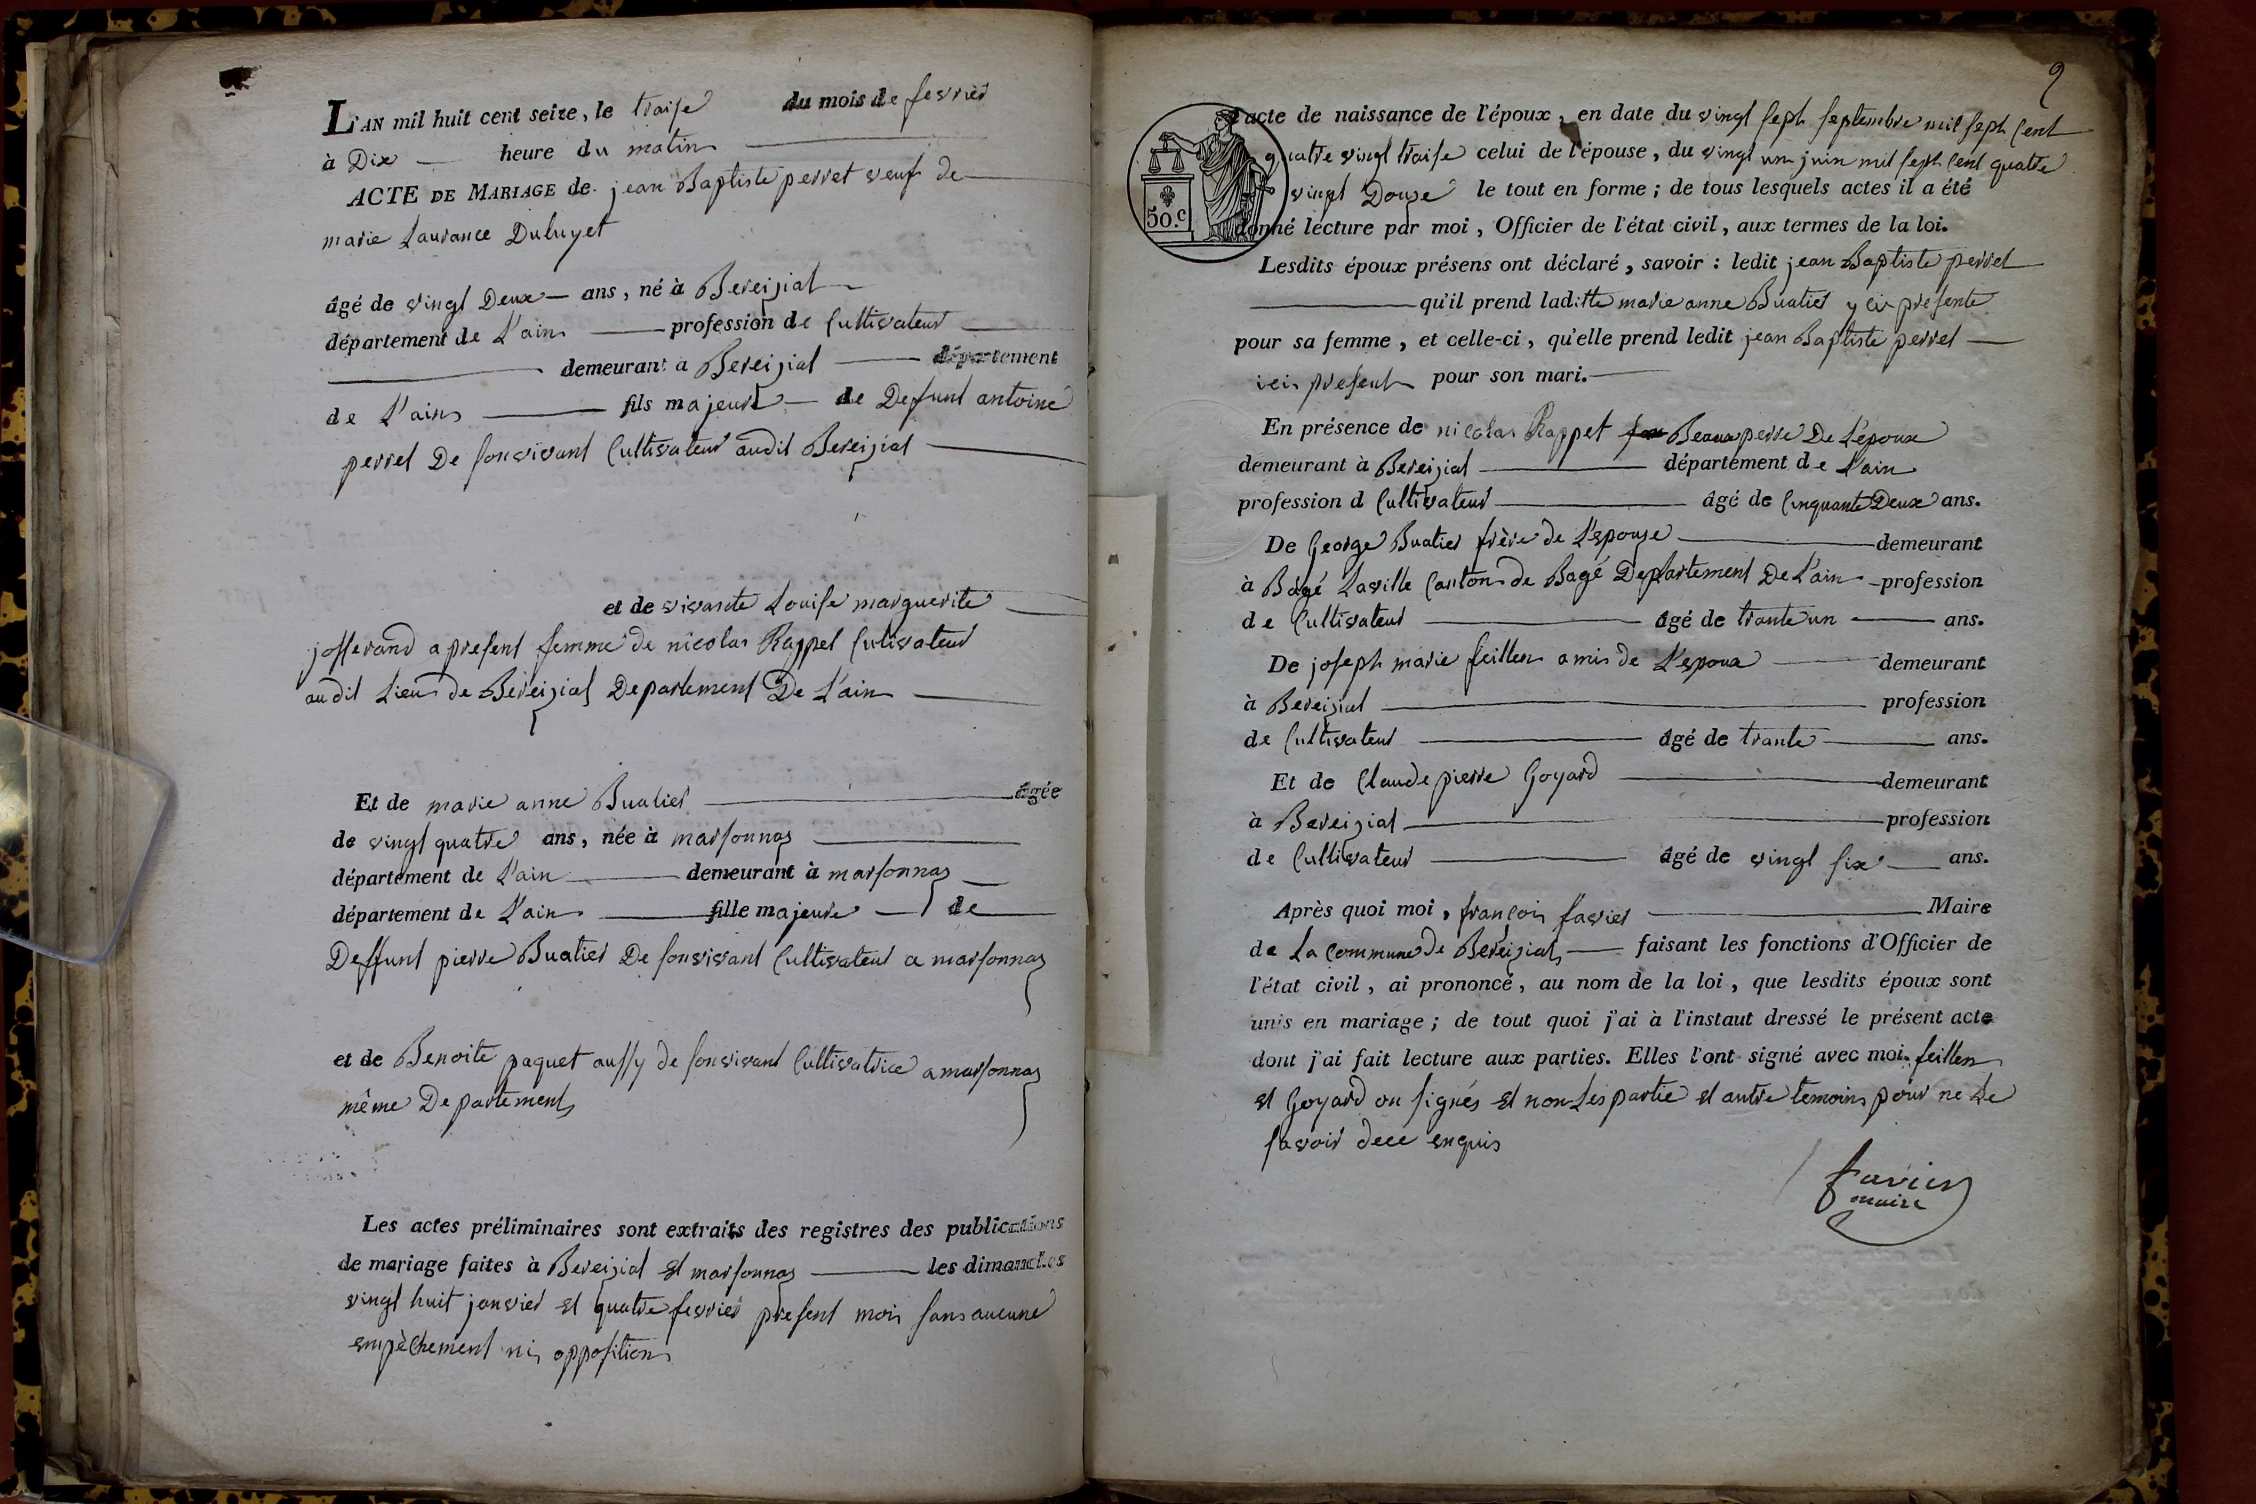 L'AN mil huit cent seize, le traise du mois de fevrier
à Dix heure du matin
ACTE DE MARIAGE de jean Baptiste perret veuf de
marie Laurance Duluyet
âgé de vingt Deux ans, né à Bereiziat
département de L'ain profession de Cultivateur
demeurant à Bereiziat département
de L'ain fils majeur de Defunt antoine
perret De sonvivant Cultivateur audit Bereiziat
et de vivante Louise marguerite
josserand a present femme de nicolas Rappet Cutivateur
audit Lieu de Béreiziat Departement De L'ain
Et de marie anne Buatier âgée
de vingt quatre ans, née à marsonnas
département de L'ain demeurant à marsonnas
département de L'ain fille majeure de
Deffunt pierre Buatier De sonvivant Cultivateur a marsonnas
et de Benoite paquet aussy de sonvivant Cultivatrice a marsonnas
même Departement
Les actes préliminaires sont extraits des registres des publications
de mariage faites à Bereiziat et marsonnas les dimanches
vingt huit janvier et quatre fevrier present mois sans aucune
empêchement ni opposition
9
l'acte de naissance de l'époux, en date du vingt sept septembre mil sept Cent
quatre vingt traise celui de l'épouse, du vingt un juin mil sept Cent quatre
vingt Douze le tout en forme; de tous lesquels actes il a été
50.c donné lecture par moi, Officier de l'état civil, aux termes de la loi.
Lesdits époux présens ont déclaré, savoir: ledit jean Baptiste perret
qu'il prend laditte marie anne Buatier y ci présente
pour sa femme, et celle-ci, qu'elle prend ledit jean Baptiste perret
icis present pour son mari.
En présence de nicolas Rappet Beauxperre De L'époux
demeurant à Bereiziat département de L'ain
profession d Cultivateur âgé de Cinquante Deux ans.
De George Buatier frère de L'epouse demeurant
à Bâgé Laville Canton de Bagé Departement De L'ain profession
de Cultivateur âgé de trante un ans.
De joseph marie feillen amis de L'epoux demeurant
à Bereiziat profession
de Cultivateur âgé de trante ans.
Et de Claude pierre Goyard demeurant
à Bereiziat profession
de Cultivateur âgé de vingt six ans.
Après quoi moi, françois favier Maire
de La Commune de Bereiziat faisant les fonctions d'Officier de
l'état civil, ai prononcé, au nom de la loi, que lesdits époux sont
unis en mariage; de tout quoi j'ai à l'instaut dressé le présent acte
dont j'ai fait lecture aux parties. Elles l'ont signé avec moi. feillen
et Goyard on signés et non Les partie et autre temoins pour ne Le
savoir dece enquis
favier
maire